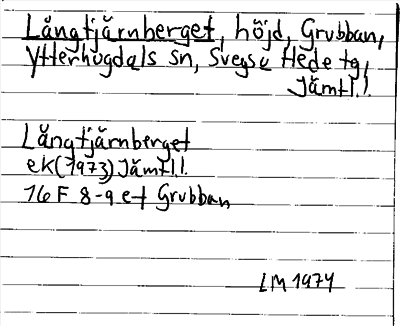 Långtjärnberget, höjd, Grubban,
Ytterhogdals sn, Svegs o Hede tg,
Jämtl.l.
Långtjärnberget
ek (1973) Jämtl.l.
16 F 8-9 e-f Grubban
LM 1974